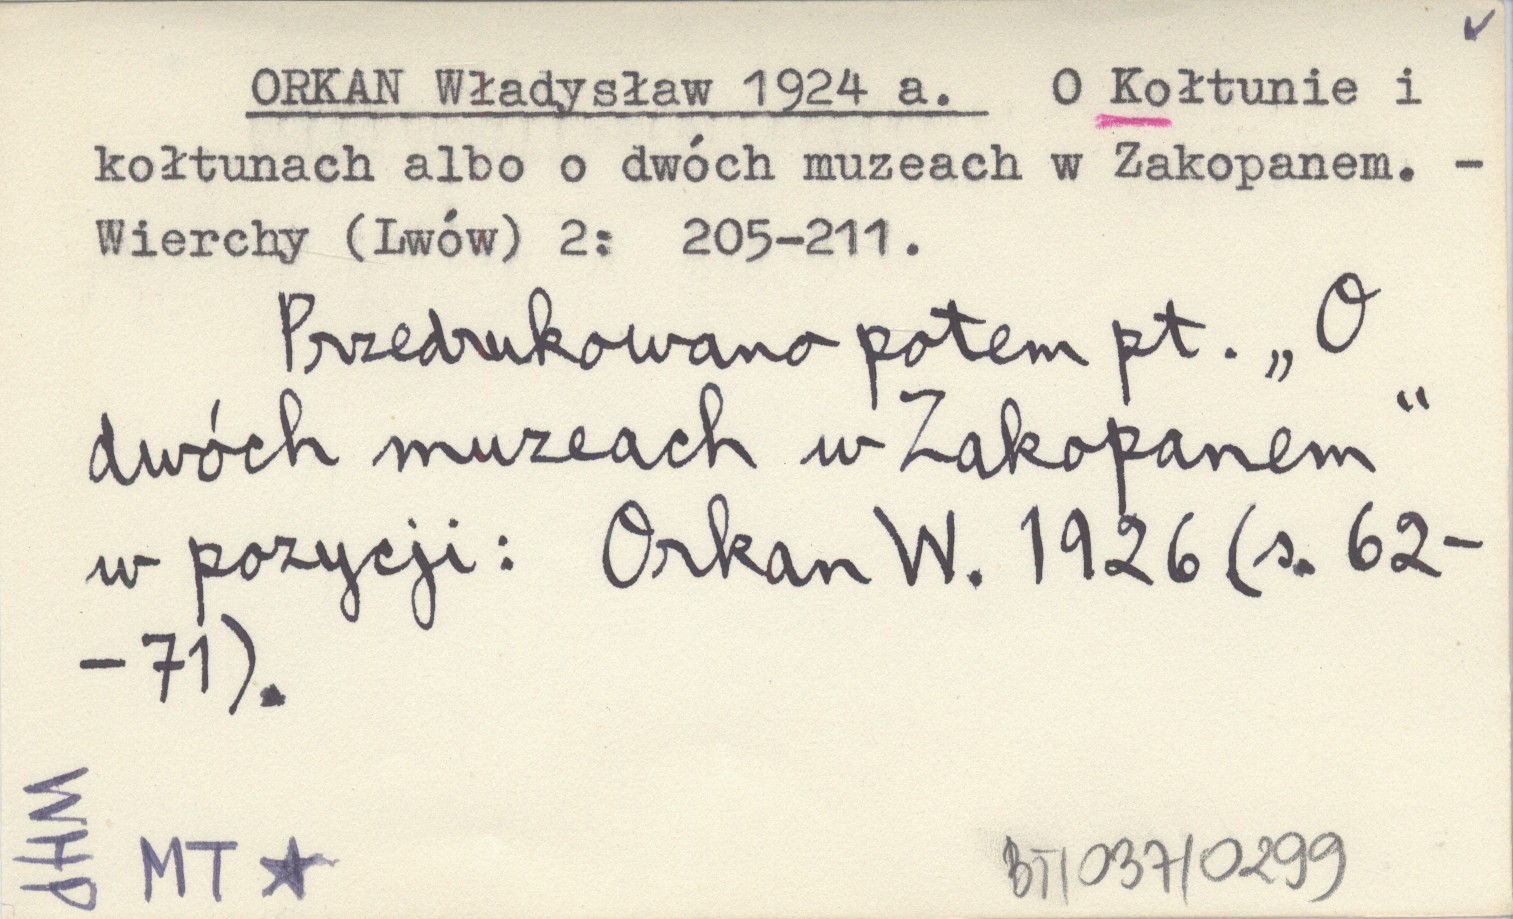 ORKAN Władysław 1924 a. O Kołtunie i
kołtunach albo o dwóch muzeach w Zakopanem. -
Wierchy (Lwów) 2: 205-211.
Przedrukowano potem pt. „O
dwóch muzeach w Zakopanem“
w pozycji: Orkan W. 1926 (s. 62-
-71).
WHP
MT ★
BT/037/0299